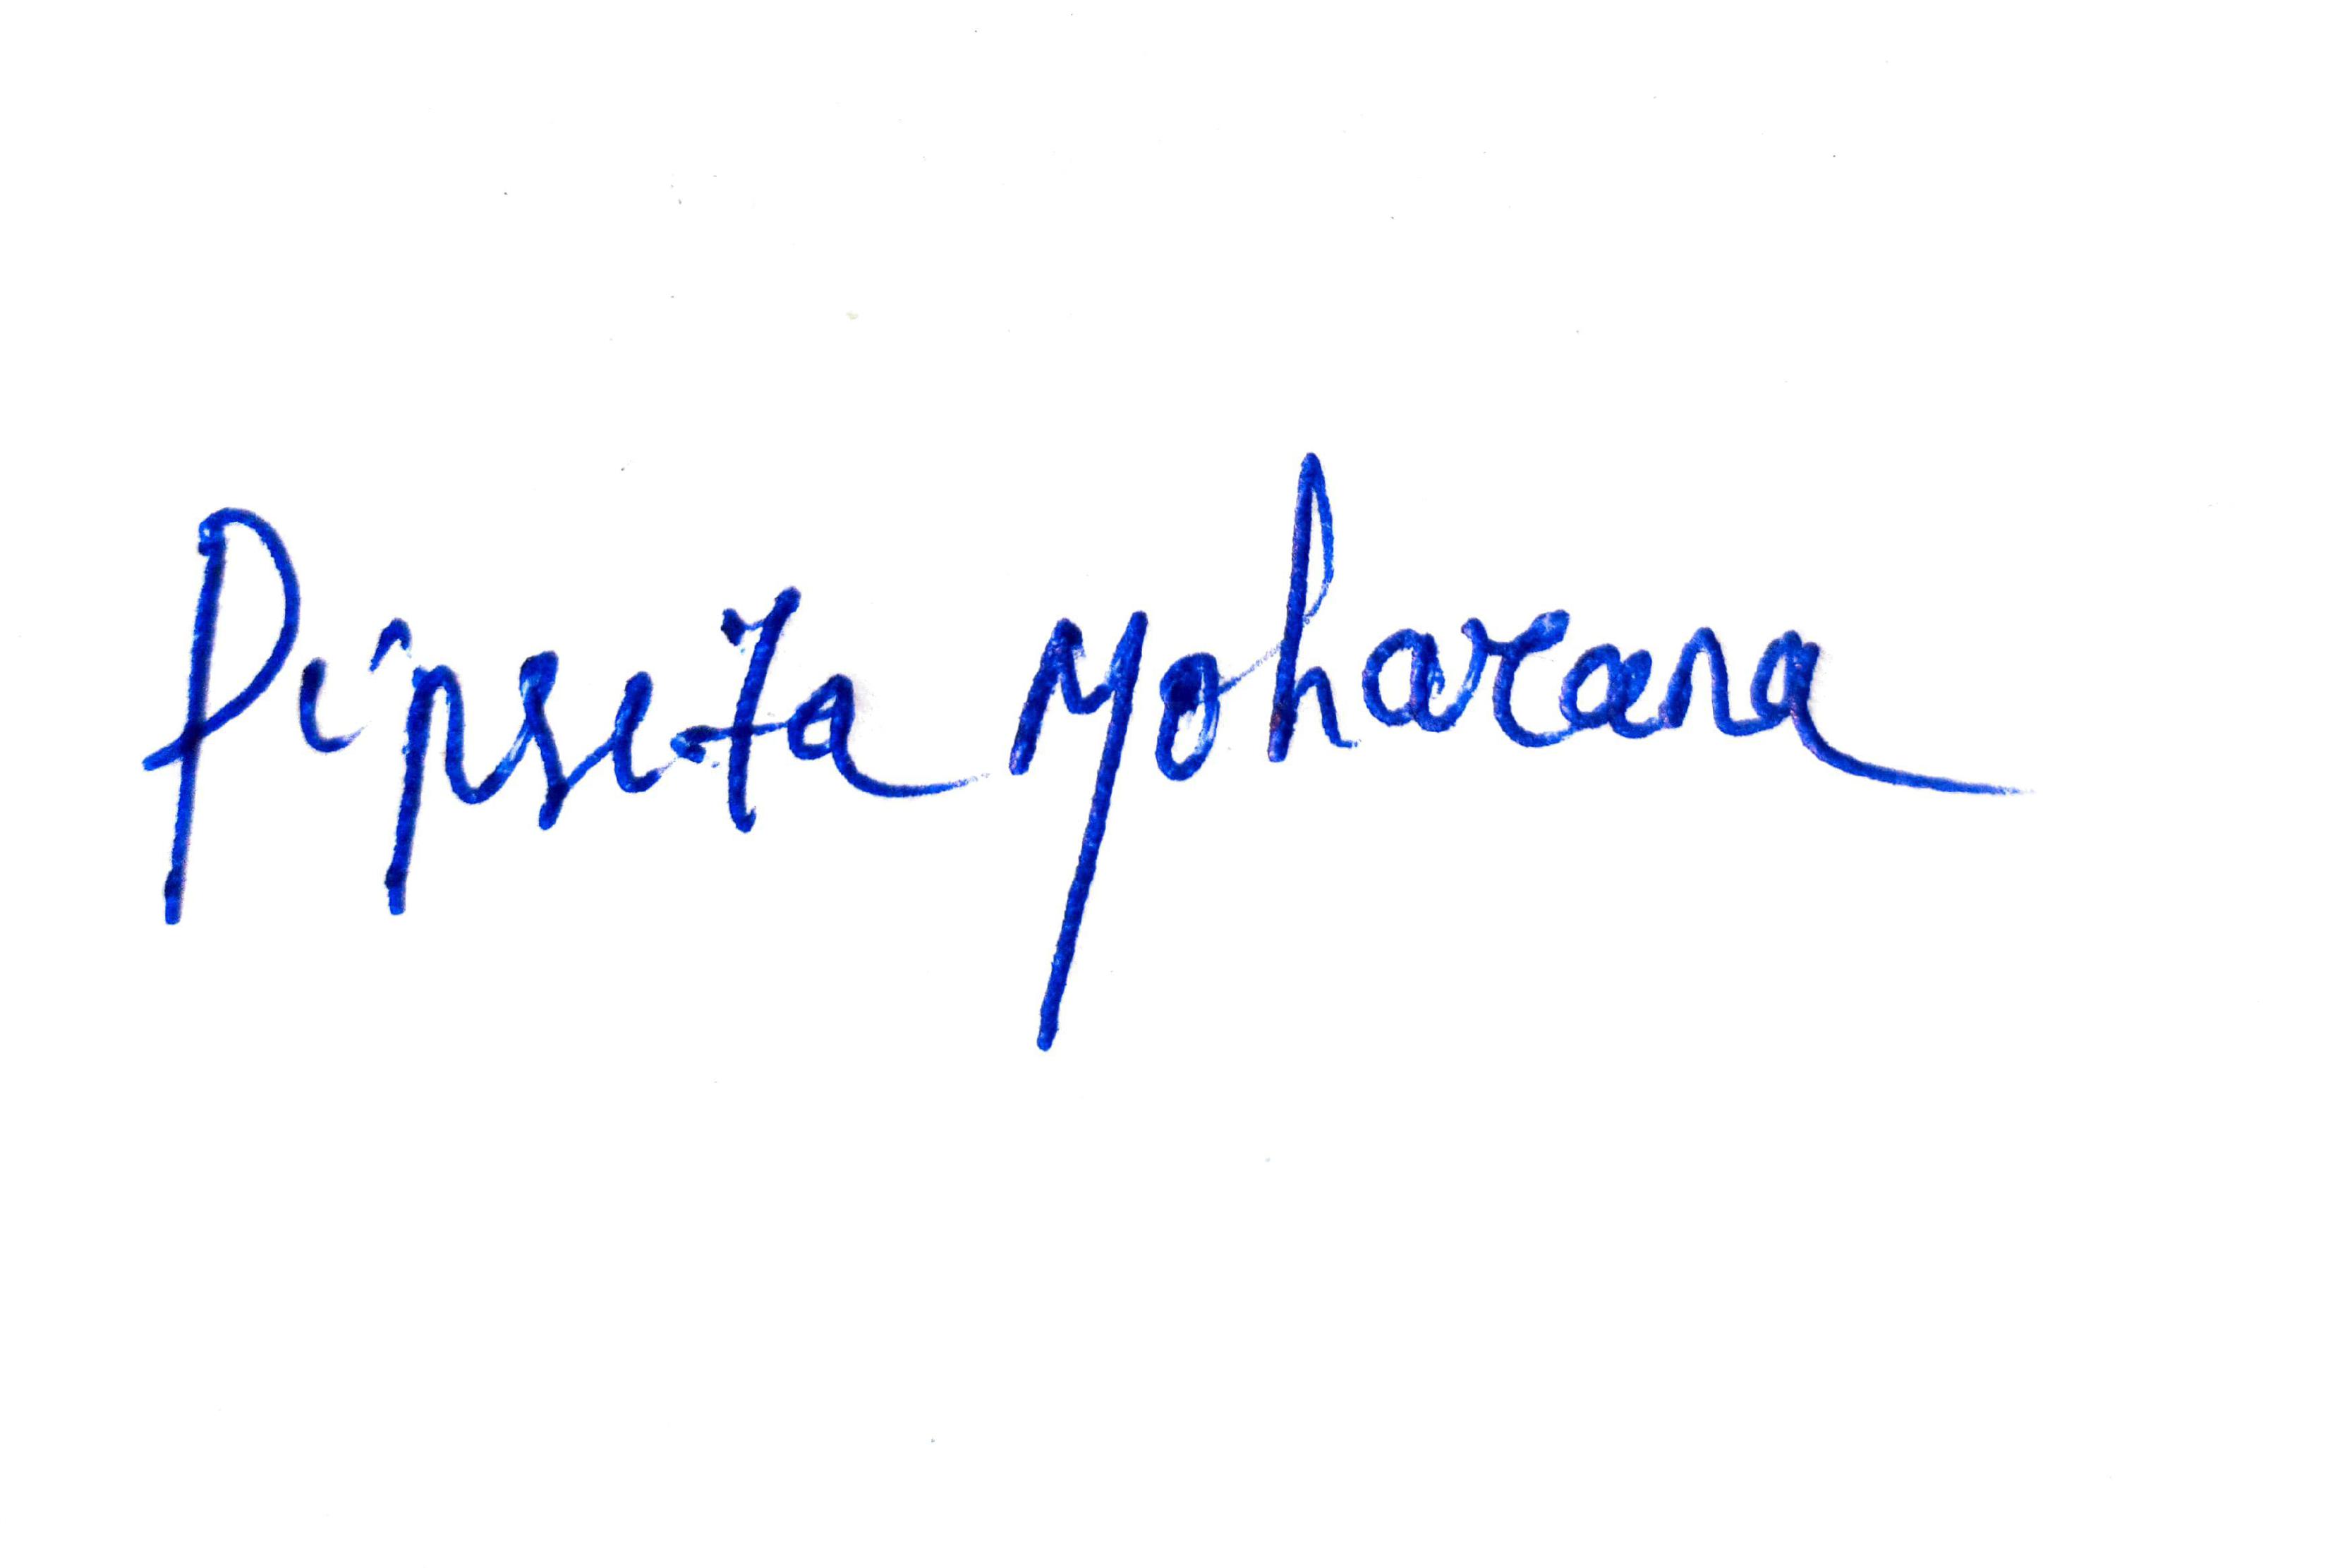 Pipseita Moharana